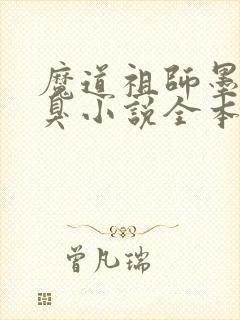 魔道祖師墨
臭小説全本
曾凡瑞